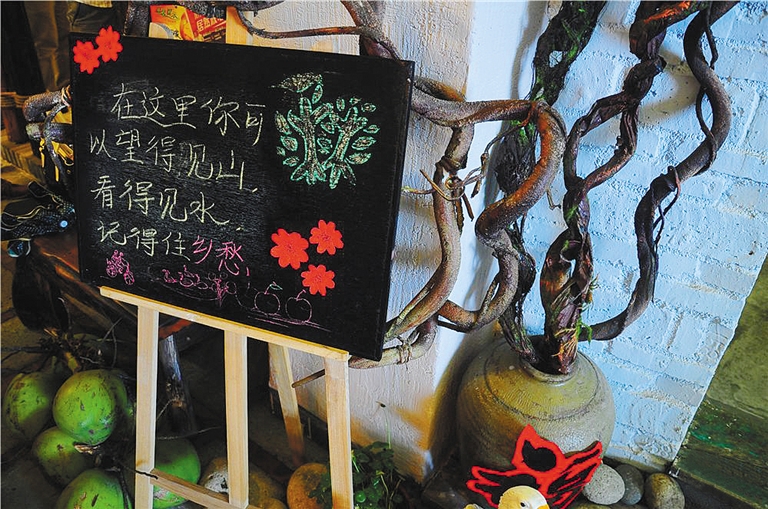 在这里你可
以望得见山、
看得见水、
记得住乡愁